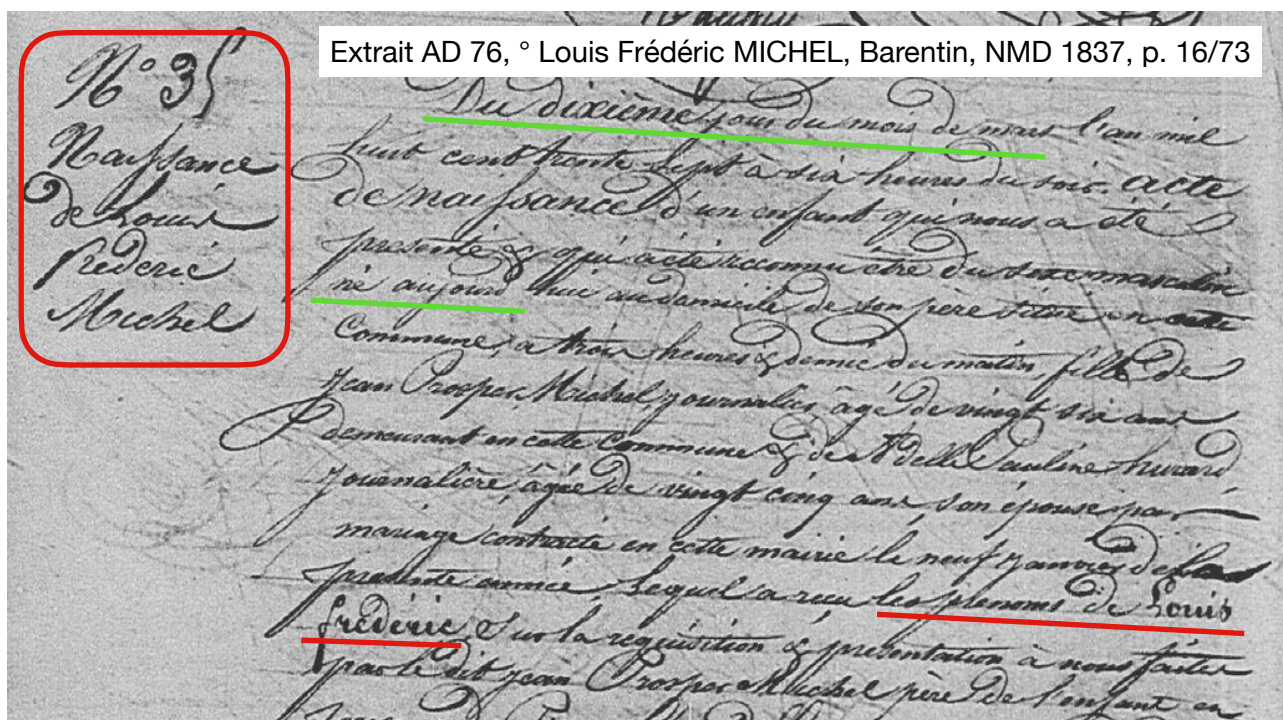 Extrait AD 76, ° Louis Frédéric MICHEL, Barentin, NMD 1837, p. 16/73
N° 35
Naissance
de Louis
frédéric
Michel
Du dixième jour du mois de mars l'an mil
huit cent trente sept à six heures du soir. acte
de naissance d'un enfant qui nous a été
presenté & qui a été reconnu être du sexe masculin
né aujourd'hui au domicile de son père situé en cette
Commune, a trois heures & demie du matin, fils de
Jean Prosper Michel, journalier, agé de vingt six ans
demeurant en cette Commune & de Adelle Pauline hurard,
journalière, âgée de vingt cinq ans son épouse par
mariage contracté en cette mairie le neuf janvier de la
presente année, lequel a reçu les prenoms de Louis
frédéric Sur la requisition & presentation à nous faites
par le dit Jean Prosper Michel père de l'enfant en